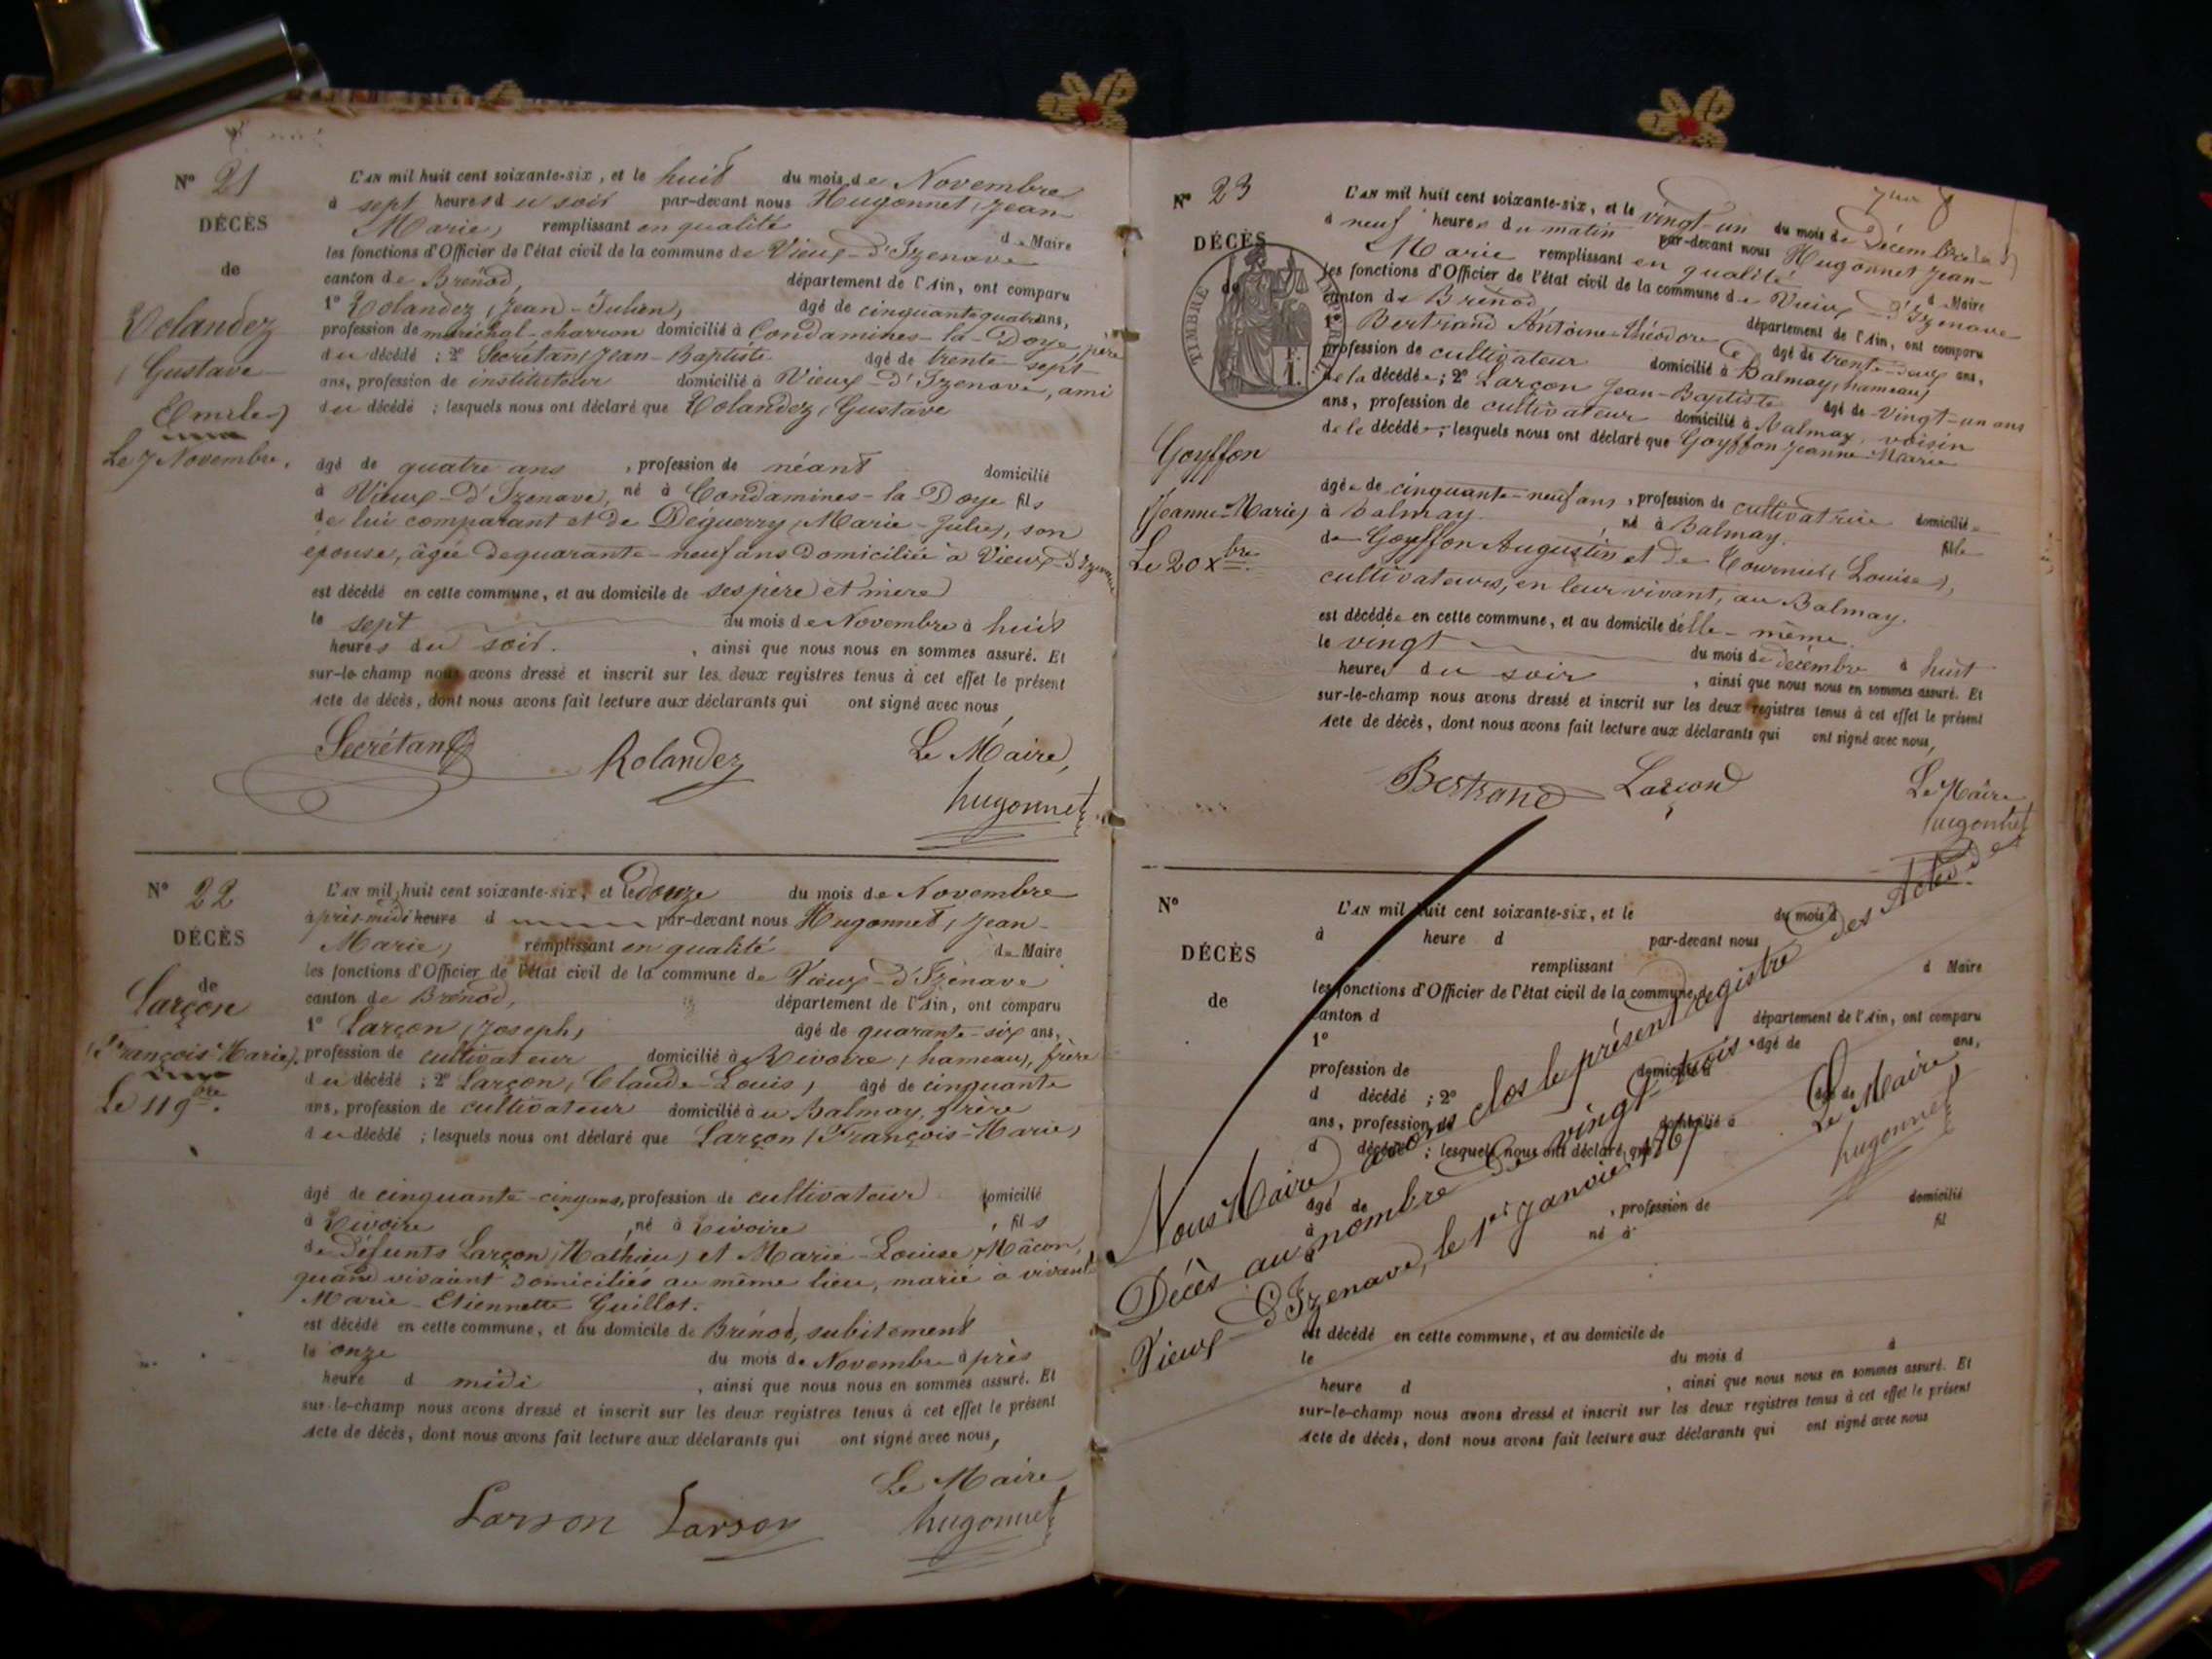 N° 21
DÉCÈS
de
Rolandez
(Gustave
Emile)
Le 7 Novembre.
L'AN mil huit cent soixante-six, et le huit du mois de Novembre
à sept heures du soir par-devant nous Hugonnet (Jean-
Marie) remplissant en qualité de Maire
les fonctions d'Officier de l'état civil de la commune de Vieux-d'Izenave
canton de Brénod, département de l'Ain, ont comparu
1° Rolandez (Jean-Julien) âgé de cinquante quatre ans,
profession de maréchal-charron domicilié à Condamines-la-Doye, père
du décédé ; 2° Secrétan (Jean-Baptiste âgé de trente-sept
ans, profession de instituteur domicilié à Vieux-d'Izenave, ami
du décédé ; lesquels nous ont déclaré que Rolandez (Gustave
âgé de quatre ans, profession de néant domicilié
à Vieux-d'Izenave, né à Condamines-la-Doye fils
de lui comparant et de Déguerry (Marie-Julie), son
épouse, âgée de quarante-neuf ans domiciliée à Vieux-d'Izenave
est décédé en cette commune, et au domicile de ses père et mère
le sept du mois de Novembre à huit
heures du soir. , ainsi que nous nous en sommes assuré. Et
sur-le-champ nous avons dressé et inscrit sur les deux registres tenus à cet effet le présent
acte de décès, dont nous avons fait lecture aux déclarants qui ont signé avec nous,
Secrétan Rolandez Le Maire,
hugonnet
N° 22
DÉCÈS
de
Larçon
(François Marie).
Le 11 9bre.
L'AN mil huit cent soixante-six, et le douze du mois de Novembre
après-midi heure d par-devant nous Hugonnet (Jean-
Marie) remplissant en qualité de Maire
les fonctions d'Officier de l'état civil de la commune de Vieux-d'Izenave
canton de Brénod, département de l'Ain, ont comparu
1° Larçon (Joseph) âgé de quarante-six ans,
profession de cultivateur domicilié à Rivoire (hameau), frère
du décédé ; 2° Larçon (Claude-Louis) âgé de cinquante
ans, profession de cultivateur domicilié à u Balmay, frère
du décédé ; lesquels nous ont déclaré que Larçon (François-Marie)
âgé de cinquante-cinq ans, profession de cultivateur domicilié
à Rivoire, né à Rivoire fils
de défunts Larçon (Mathieu) et Marie-Louise Mâcon,
quand vivaient domiciliés au même lieu, marié à vivant
Marie-Etiennette Guillot.
est décédé en cette commune, et au domicile de Brénod, subitement
le onze du mois de Novembre après
heure d midi , ainsi que nous nous en sommes assuré. Et
sur-le-champ nous avons dressé et inscrit sur les deux registres tenus à cet effet le présent
acte de décès, dont nous avons fait lecture aux déclarants qui ont signé avec nous,
Le Maire
Larson Larson hugonnet
N° 23
DÉCÈS
de
TIMBRE IMPERIAL
Goyffon
(Jeanne-Marie)
Le 20 Xbre.
L'AN mil huit cent soixante-six, et le vingt-un du mois de Décembre
à neuf heures du matin par-devant nous Hugonnet Jean-
Marie remplissant en qualité de Maire
les fonctions d'Officier de l'état civil de la commune de Vieux-d'Izenave
canton de Brénod, département de l'Ain, ont comparu
1° Bertrand Antoine-Théodore âgé de trente-deux ans,
profession de cultivateur domicilié à Balmay, hameau,
de la décédée ; 2° Larçon Jean-Baptiste âgé de vingt-un ans
ans, profession de cultivateur domicilié à Balmay, voisin
de le décédé ; lesquels nous ont déclaré que Goyffon Jeanne-Marie
âgée de cinquante-neuf ans, profession de cultivatrice domicilié
à Balmay, né à Balmay. fille
de Goyffon Augustin et de Tournier (Louise),
cultivateurs, en leur vivant, au Balmay.
est décédée en cette commune, et au domicile d'elle-même.
le vingt du mois de décembre à huit
heures du soir , ainsi que nous nous en sommes assuré. Et
sur-le-champ nous avons dressé et inscrit sur les deux registres tenus à cet effet le présent
acte de décès, dont nous avons fait lecture aux déclarants qui ont signé avec nous,
Bertrand Larcon Le Maire
hugonnet
N°
DÉCÈS
de
L'AN mil huit cent soixante-six, et le du mois d
à heure d par-devant nous
remplissant d Maire
les fonctions d'Officier de l'état civil de la commune d
canton d département de l'Ain, ont comparu
1° âgé de ans,
profession de domicilié à
d décédé ; 2° âgé de
ans, profession de domicilié à
d décédé ; lesquels nous ont déclaré que
âgé de , profession de domicilié
à né à fil
d
est décédé en cette commune, et au domicile de
le du mois d à
heure d , ainsi que nous nous en sommes assuré. Et
sur-le-champ nous avons dressé et inscrit sur les deux registres tenus à cet effet le présent
acte de décès, dont nous avons fait lecture aux déclarants qui ont signé avec nous
Nous Maire, avons clos le présent registre des Actes de
Décès au nombre de vingt-trois.
Vieux-d'Izenave, le 1er Janvier 1867
Le Maire,
hugonnet